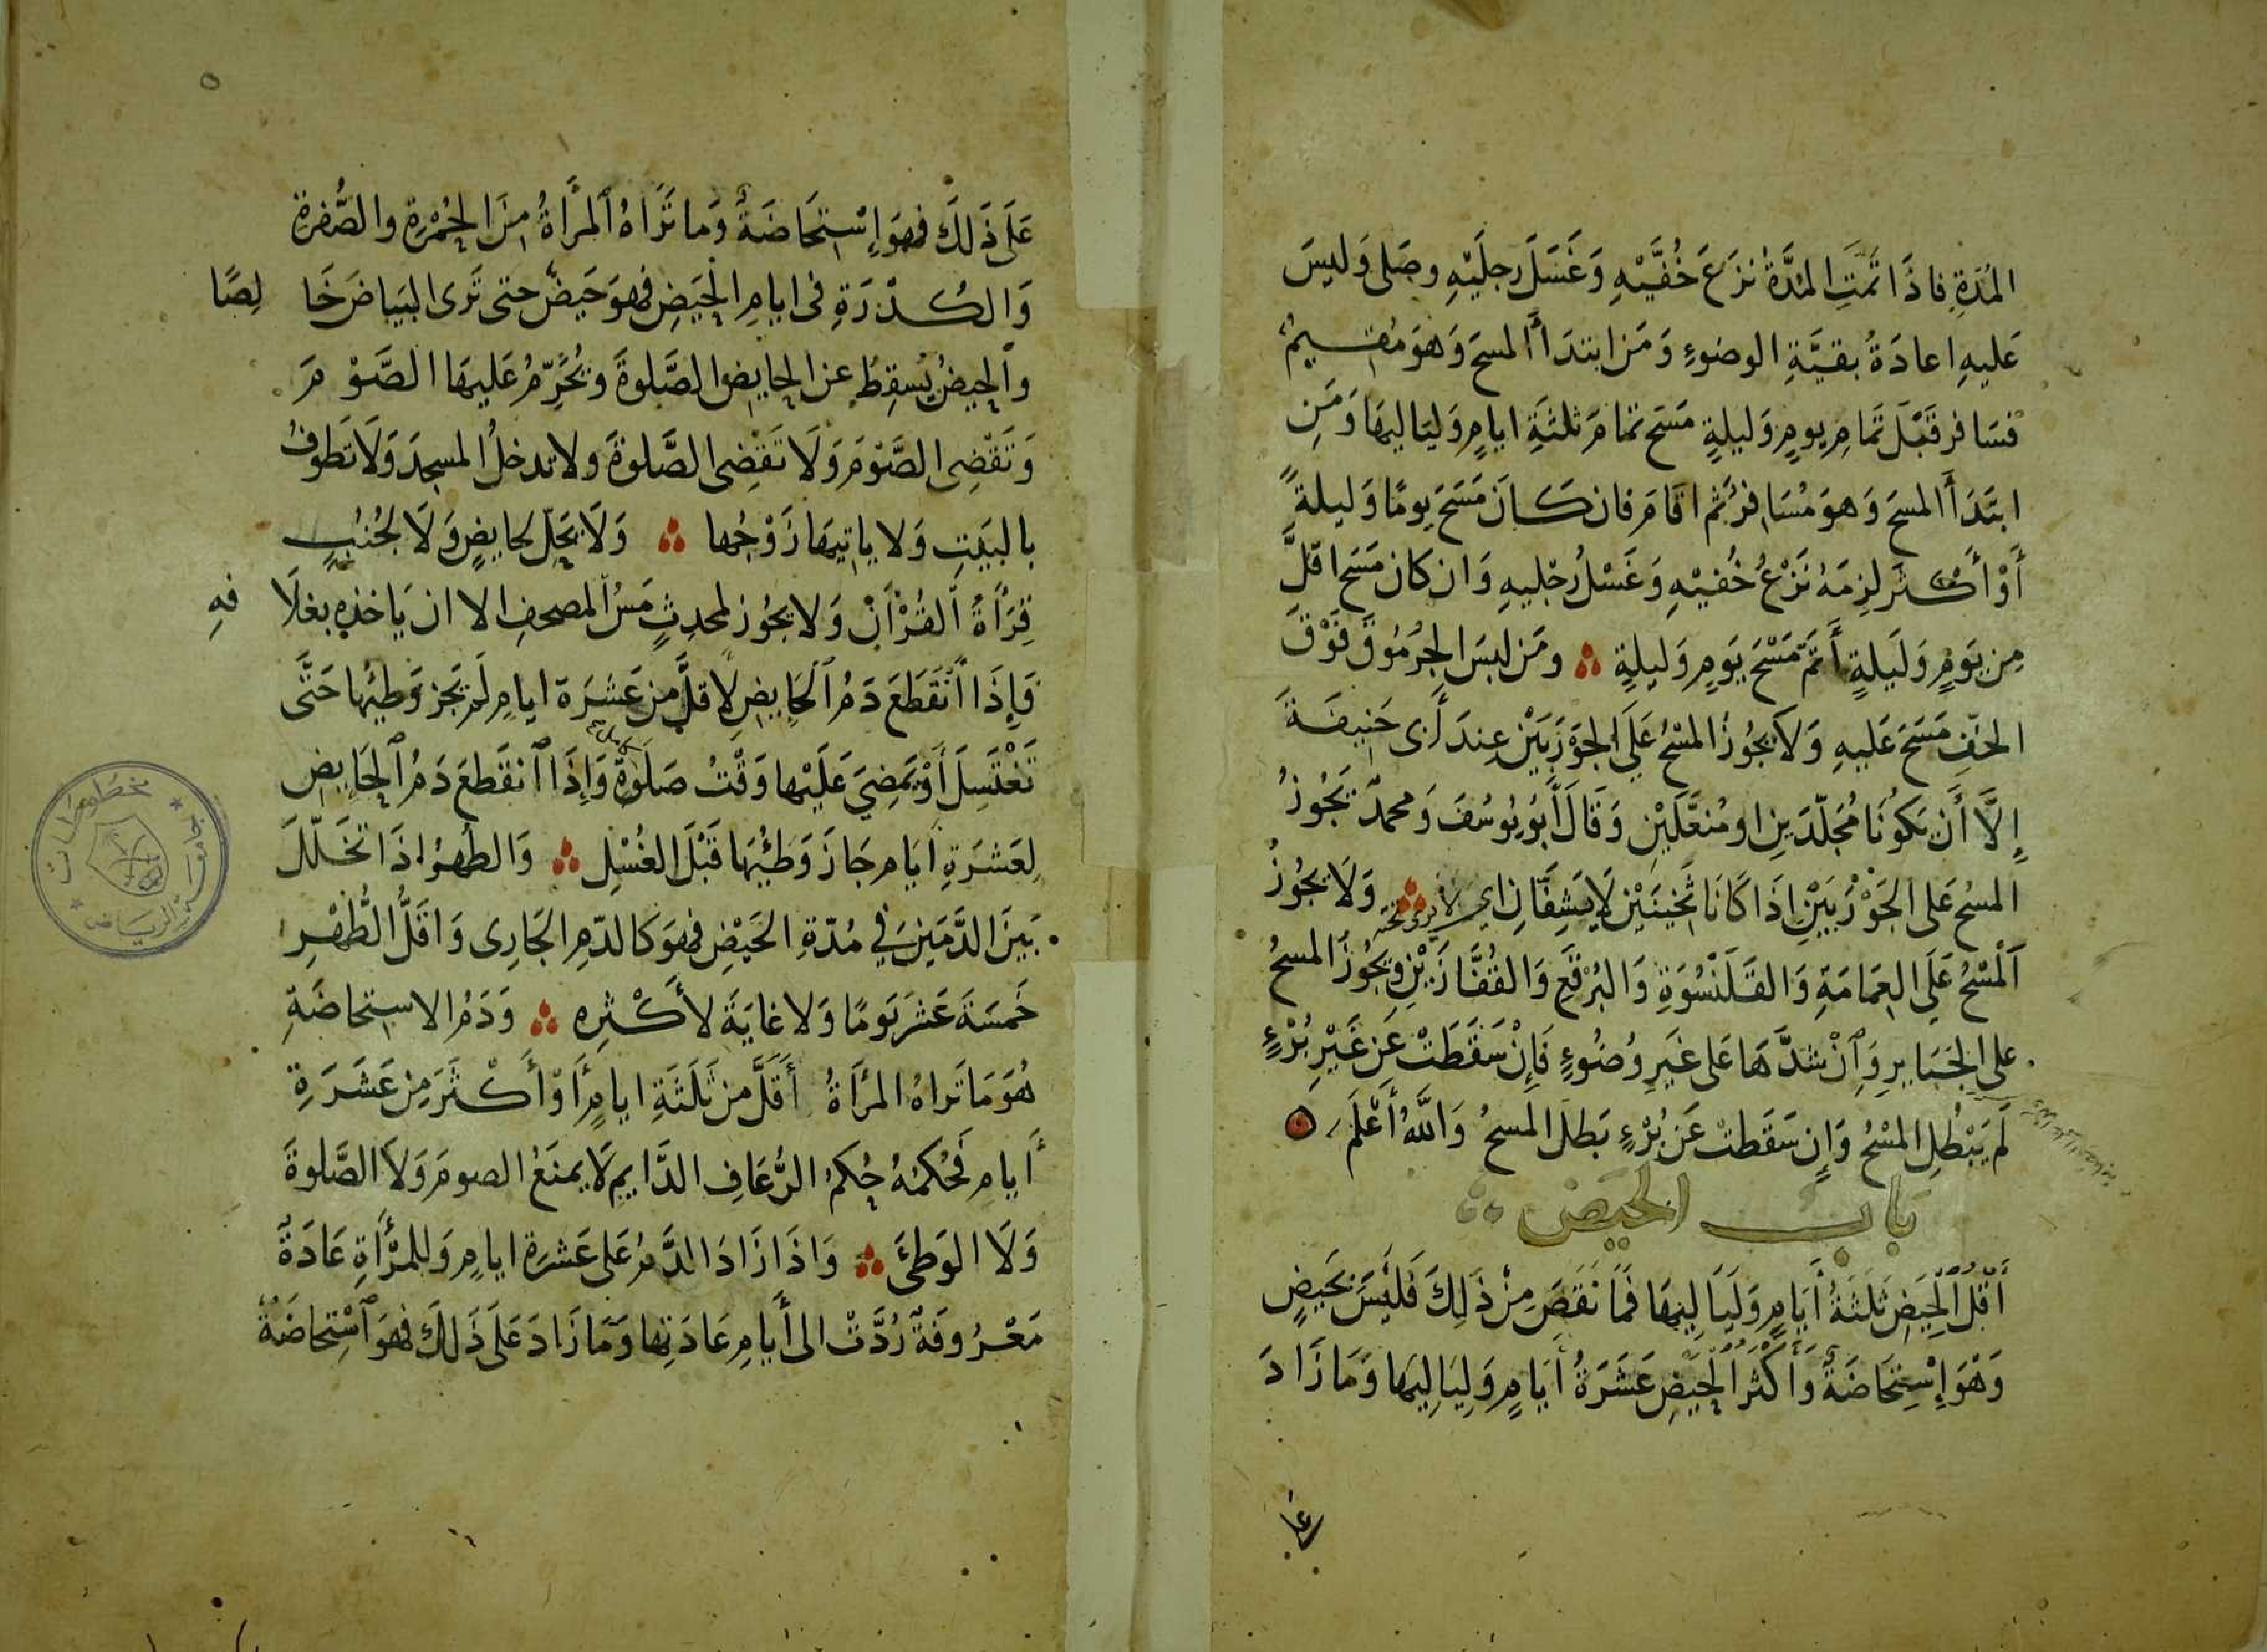 المُدَّةِ فاذَا تمَّتِ المُدَّةُ نَزَعَ خُفَّيْهِ وَغَسَلَ رِجلَيْهِ وصَلى وَليسَ
عَليهِ اعادَةُ بقيَّةِ الوضوءِ وَمَن ابتدَأَ المسحَ وَهوَ مُقيمٌ
فسَافر قَبْلَ تمَامِ يومٍ وَليلةٍ مَسَح تمامَ ثلثَةِ ايامٍ وَلياليهَا وَمَنِ
ابتَدَأَ المسحَ وَهوَ مُسَافرٌ ثم اقَامَ فان كَانَ مَسَحَ يومًا وَليلةً
أَوْ أكْثَرَ لزِمَهُ نَزْعُ خُفيْهِ وَغَسْلُ رِجْليهِ وَان كانَ مَسَحَ اقلَّ
مِن يَومٍ وَلَيلَةٍ أَتَمَّ مَسْحَ يَومٍ وَليلةٍ ومَن لبسَ الجُرمُوقَ فَوْقَ
الخفِّ مَسَحَ عَليهِ وَلَا يَجُوزُ المسْحُ عَلَى الجَوْرَبَيْنِ عِندَ أبى حَنِيفَةَ
إِلَّا أَن يَكونَا مُجَلّدَينِ او مُنعَّلَيْنِ وَقَالَ أبُو يُوسُفَ وَمحمدٌ يَجُوزُ
المسْحُ عَلى الجَوْرَبَيْنِ اذَا كَانَا ثَخِينَيْنِ لَا يَشِفَّانِ اي لا يرى تحته وَلَا يَجُوزُ
اَلْمَسْحُ عَلَى العِمَامَةِ وَالقَلَنْسُوَةِ وَالبُرْقَعِ وَالقُفَّازَيْنِ وَيَجُوزُ المسحُ
على الجبَايرِ وَاِنْ شدَّهَا عَلى غَيرِ وُضوءٍ فَإِنْ سَقَطَتْ عَن غَيْرِ بُرْءٍ
لَم يَبْطُلِ المسْحُ وَإن سَقَطتْ عَن بُرْءٍ بَطلَ المسحُ وَاللهُ أعْلَم
بَاب الحيَض
أَقلُّ الحَيضِ ثَلثَةُ أَيَامٍ وَلَيَاليهَا فَمَا نَقَصَ مِنْ ذَلِكَ فَليْسَ بَحيضٍ
وَهْوَ إِسْتِحَاضَةٌ وَأَكْثرُ الحَيضِ عَشَرَةُ أيَامٍ وَليَاليهَا وَمَا زَادَ
عَلَى ذَلكَ فهوَ إسْتِحَاضَةٌ وَما تَرَاهُ المرأةُ مِنَ الحُمْرَةِ والصُّفرَةِ
وَالكُدْرَةِ فى ايامِ الحَيضِ فهوَ حَيضٌ حتى تَرى البيَاضَ خَالِصًا
وَالحيضُ يُسقِطُ عنِ الحايضِ الصَّلوةَ وَيُحَرِّمُ عَليهَا الصَّوْمَ
وَتَقْضِى الصَّوْمَ وَلَا تَقْضِى الصَّلوةَ ولا تدخلُ المسجدَ وَلَا تَطوفُ
بالبَيتِ وَلا ياتيهَا زَوْجُها وَلَا يَحِلّ لحايضٍ وَلَا لجُنُبٍ
قِرَأَةُ القُرْآنِ وَلا يجُوز لمحدِثٍ مَسُّ المصحفِ الا ان يَاخذهِ بغلَافهِ
فَإِذَا انْقَطَعَ دَمُ الحَايِضِ لِاقلَّ مِن عَشَرَةِ ايامٍ لَم يَجز وَطيُها حَتَّى
تَغْتَسِلَ أَوْ يَمضِيَ عَلَيْها وَقْتُ صَلَوةٍ كاملٍ وَإذَا انقَطعَ دَمُ الحَايضِ
لِعَشرَةِ أيَامٍ جَازَ وَطئُهَا قَبْلَ الغُسْلِ وَالطُهرُ اذَا تخَلّلَ
بَينَ الدَّمَينِ في مُدّةِ الحَيْضِ فهوَ كالدّمِ الجَارِى وَاقَلُّ الطُّهْرِ
خَمسَةَ عَشَرَ يَومًا وَلا غايَةَ لأكْثرِهِ وَدَمُ الاستِحاضَةِ
هُوَ مَا تَراهُ المرْأَةُ أَقَلَّ مِن ثَلَثَةِ ايامٍ أَوْ أَكْثَرَ مِن عَشَرَةِ
أَيامِ فَحُكمُهُ حُكمُ الرُّعَافِ الدَّايمِ لَا يمنَعُ الصومَ وَلَا الصَّلوةَ
وَلَا الوَطئَ وَاذَا زَادَ الدَّمُ عَلى عَشرَة ايامٍ وَللمرْأَةِ عَادَةٌ
مَعْرُوفَةٌ رُدَّتْ الى أَيامِ عَادَتِها وَمَا زَادَ عَلَى ذَلكَ فهوَ اسْتِحاضَةٌ